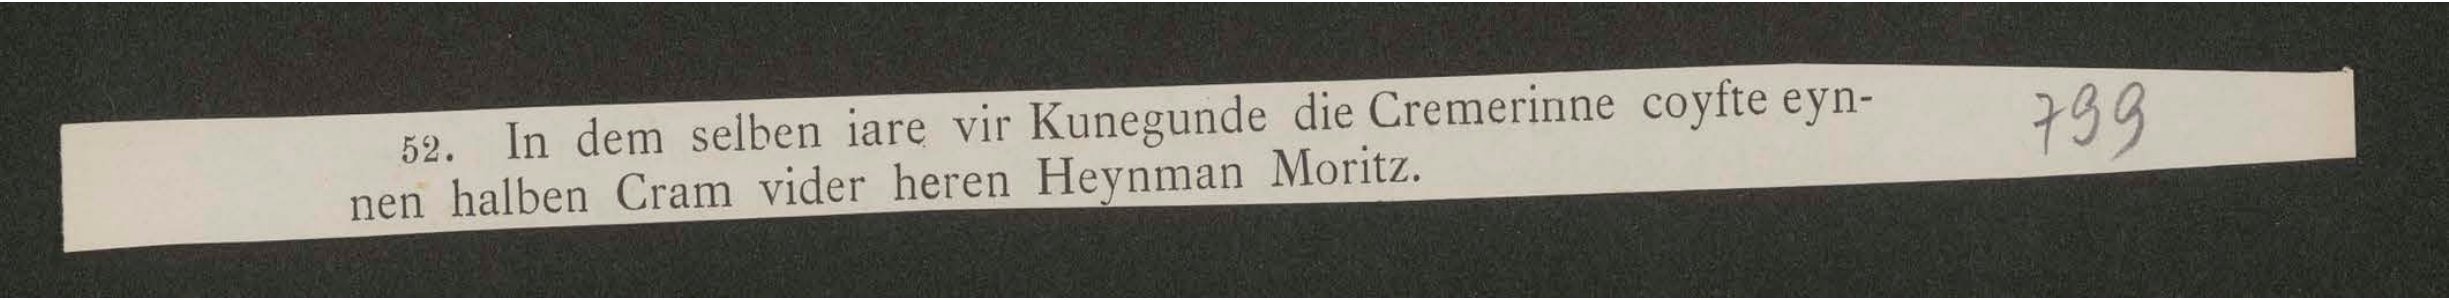 52. In dem selben iare vir Kunegunde die Cremerinne coyfte eyn- 799
nen halben Cram vider heren Heynman Moritz.